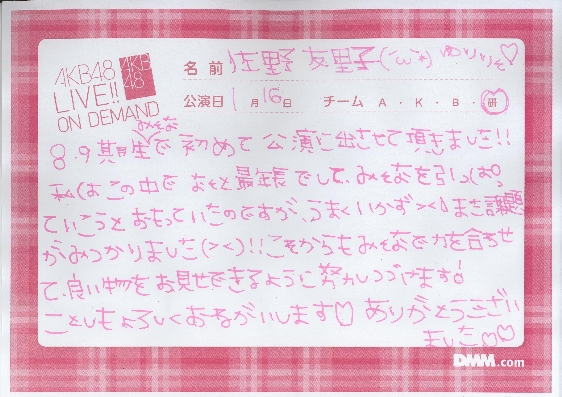 AKB48
LIVE!!
ON DEMAND
AKB
48
名前 佐野 友里子(´ω`*) ゆりりそ♡
公演日 1月16日 チーム A・K・B・研
みそな
8.9期生で初めて公演に出させて頂きました!!
私はこの中でなそと最年長でして、みそなを引っぱっ
ていこうとおもっていたのですが、うまくいかず><また課題
がみつかりました(><)!!これからもみそなで力を合わせ
て、良い物をお見せできるように努力しつづけます!
ことしもよろしくおねがいします♡ ありがとうござい
ました♡♡
DMM.com